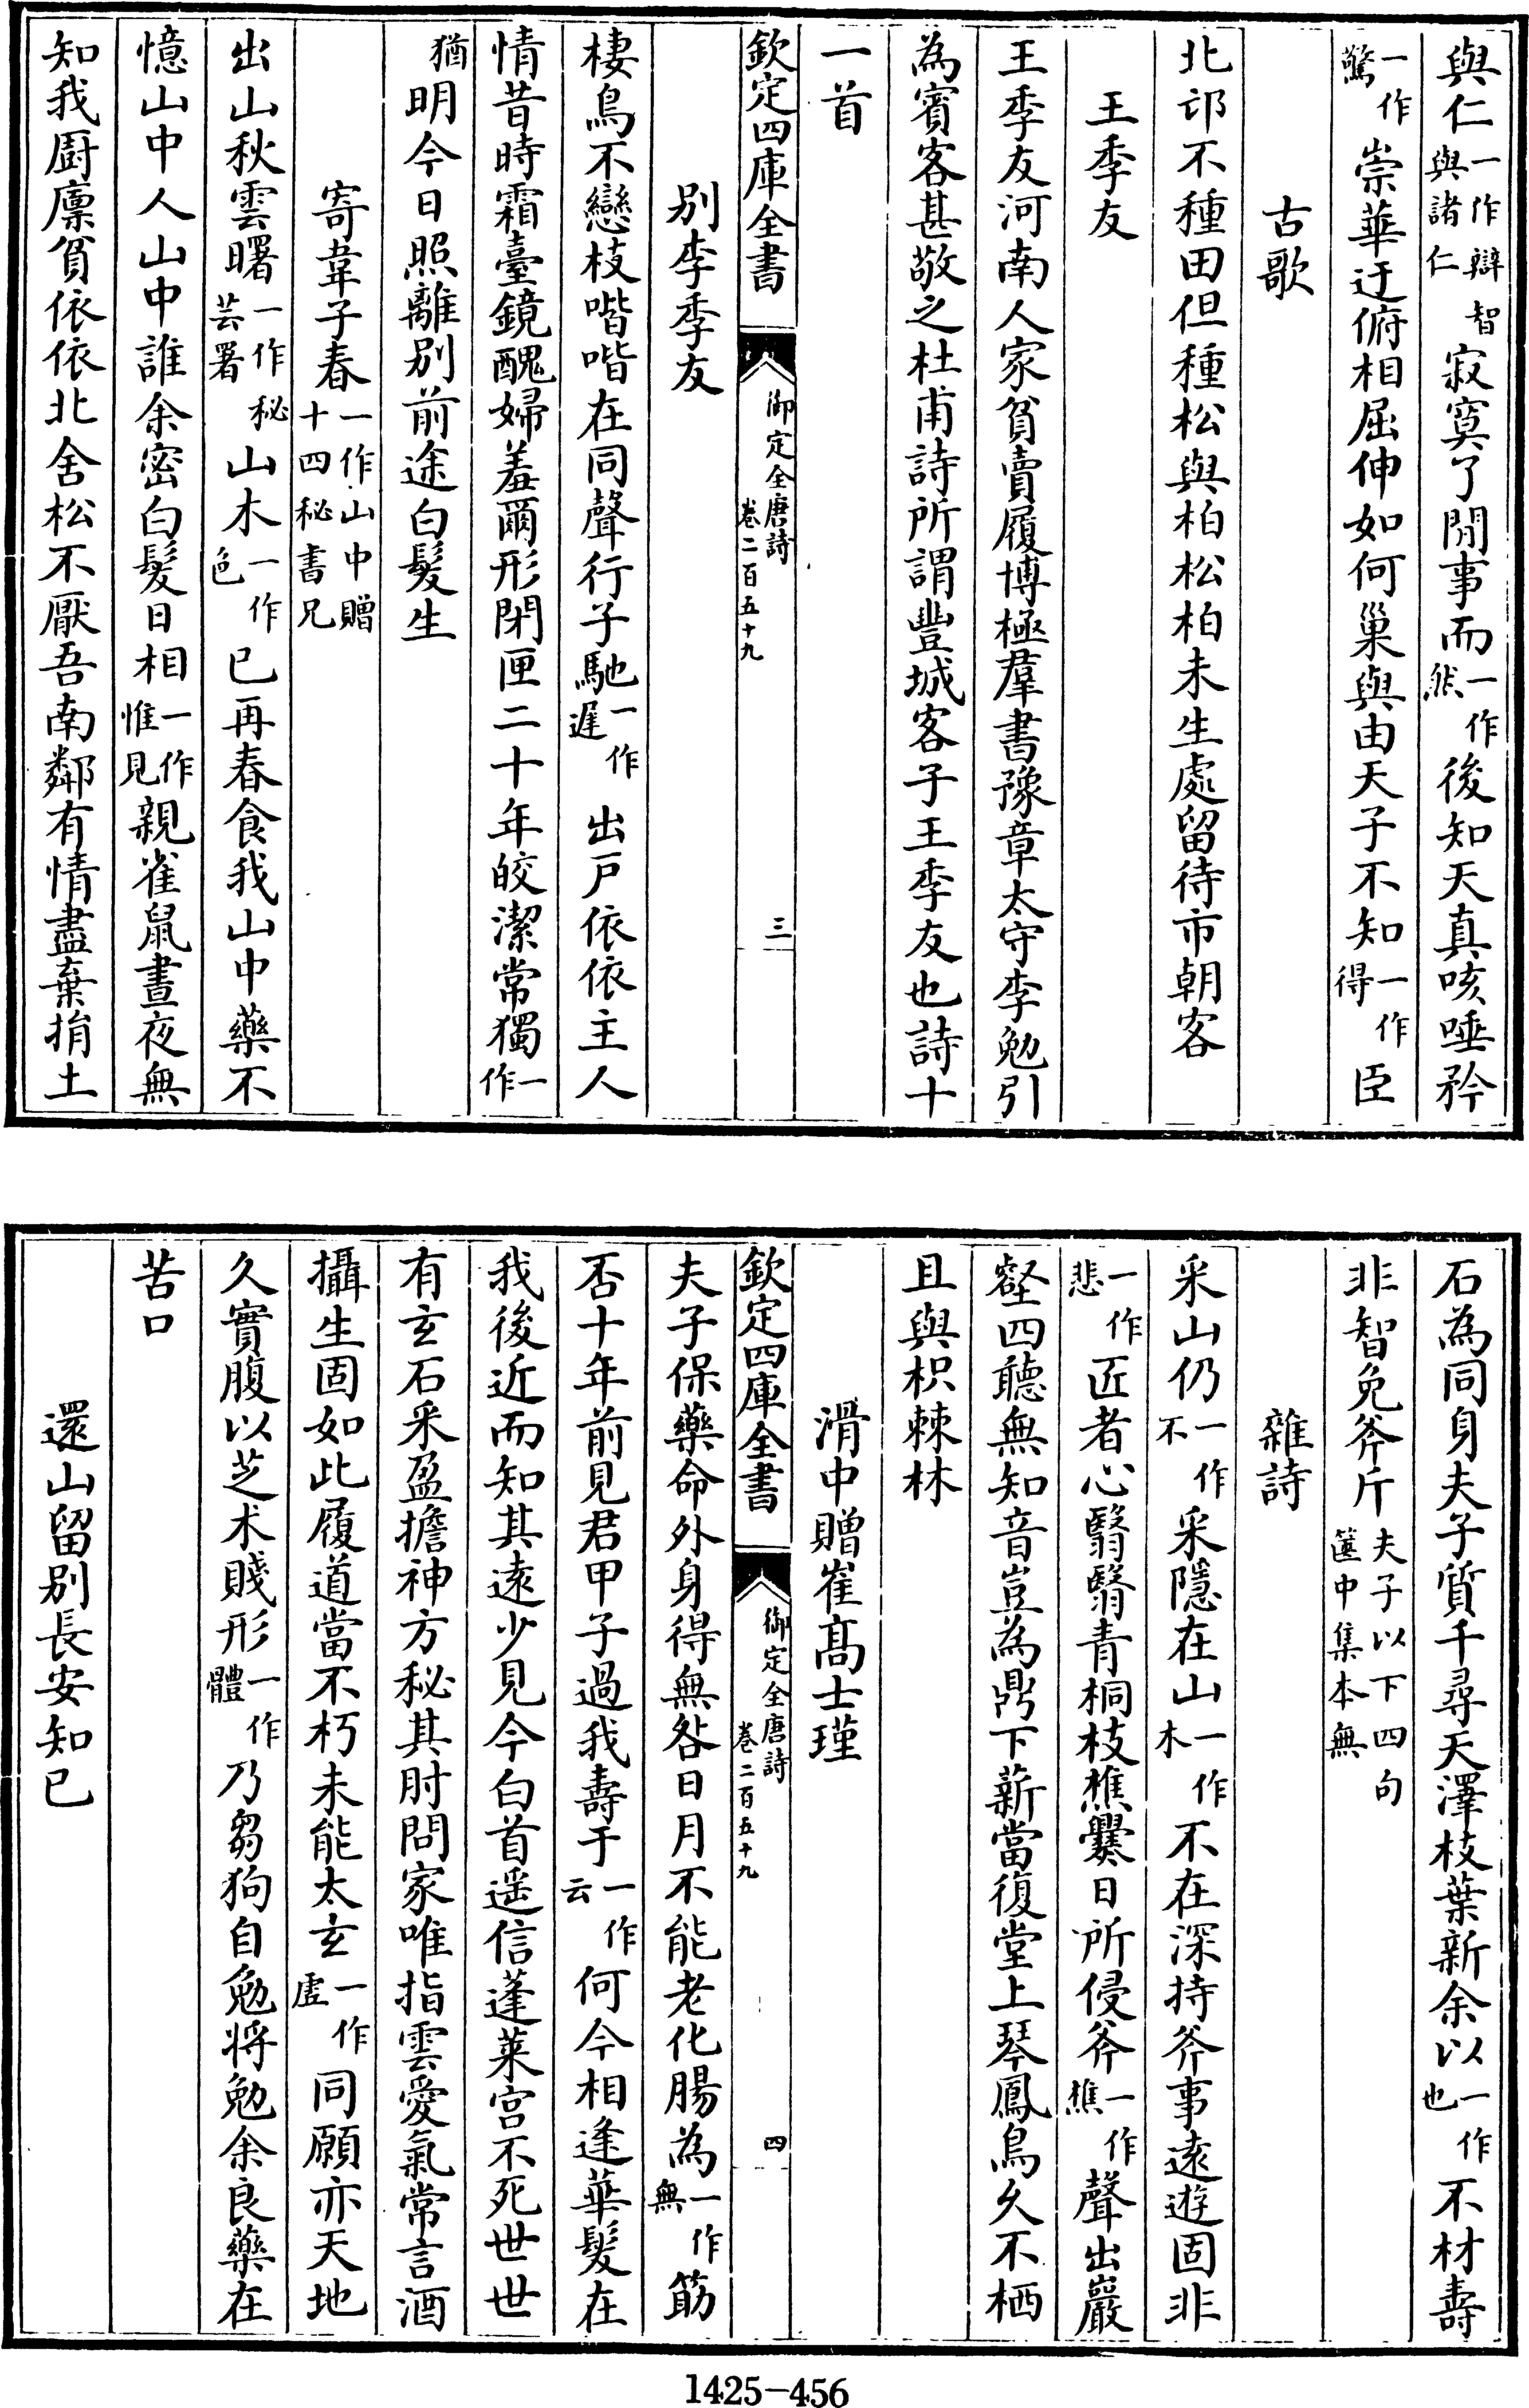 與仁一作辯智與諸仁寂寞了閒事而一作然後知天真咳唾矜
一作驚崇華迂俯相屈伸如何巢與由天子不知一作得臣
古歌
北邙不種田但種松與柏松柏未生處留待市朝客
王季友
王季友河南人家貧賣履博極羣書豫章太守李勉引
為賓客甚敬之杜甫詩所謂豐城客子王季友也詩十
一首
欽定四庫全書 御定全唐詩卷二百五十九 三
別李季友
棲鳥不戀枝喈喈在同聲行子馳一作遲出戶依依主人
情昔時霜臺鏡醜婦羞爾形閉匣二十年皎潔常獨一作
猶明今日照離別前途白髮生
寄韋子春一作山中贈十四秘書兄
出山秋雲曙一作秘芸署山木一作色已再春食我山中藥不
憶山中人山中誰余密白髮日相一作惟見親雀鼠晝夜無
知我廚廩貧依依北舍松不厭吾南鄰有情盡棄捐土
石為同身夫子質千尋天澤枝葉新余以一作也不材壽
非智免斧斤夫子以下四句篋中集本無
雜詩
采山仍一作不采隱在山一作木不在深持斧事遠遊固非
一作悲匠者心翳翳青桐枝樵爨日所侵斧一作樵聲出巖
壑四聽無知音豈為鼎下薪當復堂上琴鳳鳥久不栖
且與枳棘林
滑中贈崔高士瑾
欽定四庫全書 御定全唐詩卷二百五十九 四
夫子保藥命外身得無咎日月不能老化腸為一作無筋
否十年前見君甲子過我壽于一作云何今相逢華髮在
我後近而知其遠少見今白首遥信蓬萊宮不死世世
有玄石采盈擔神方秘其肘問家唯指雲愛氣常言酒
攝生固如此履道當不朽未能太玄一作虛同願亦天地
久實腹以芝术賤形一作體乃芻狗自勉將勉余良藥在
苦口
還山留別長安知己
1425-456